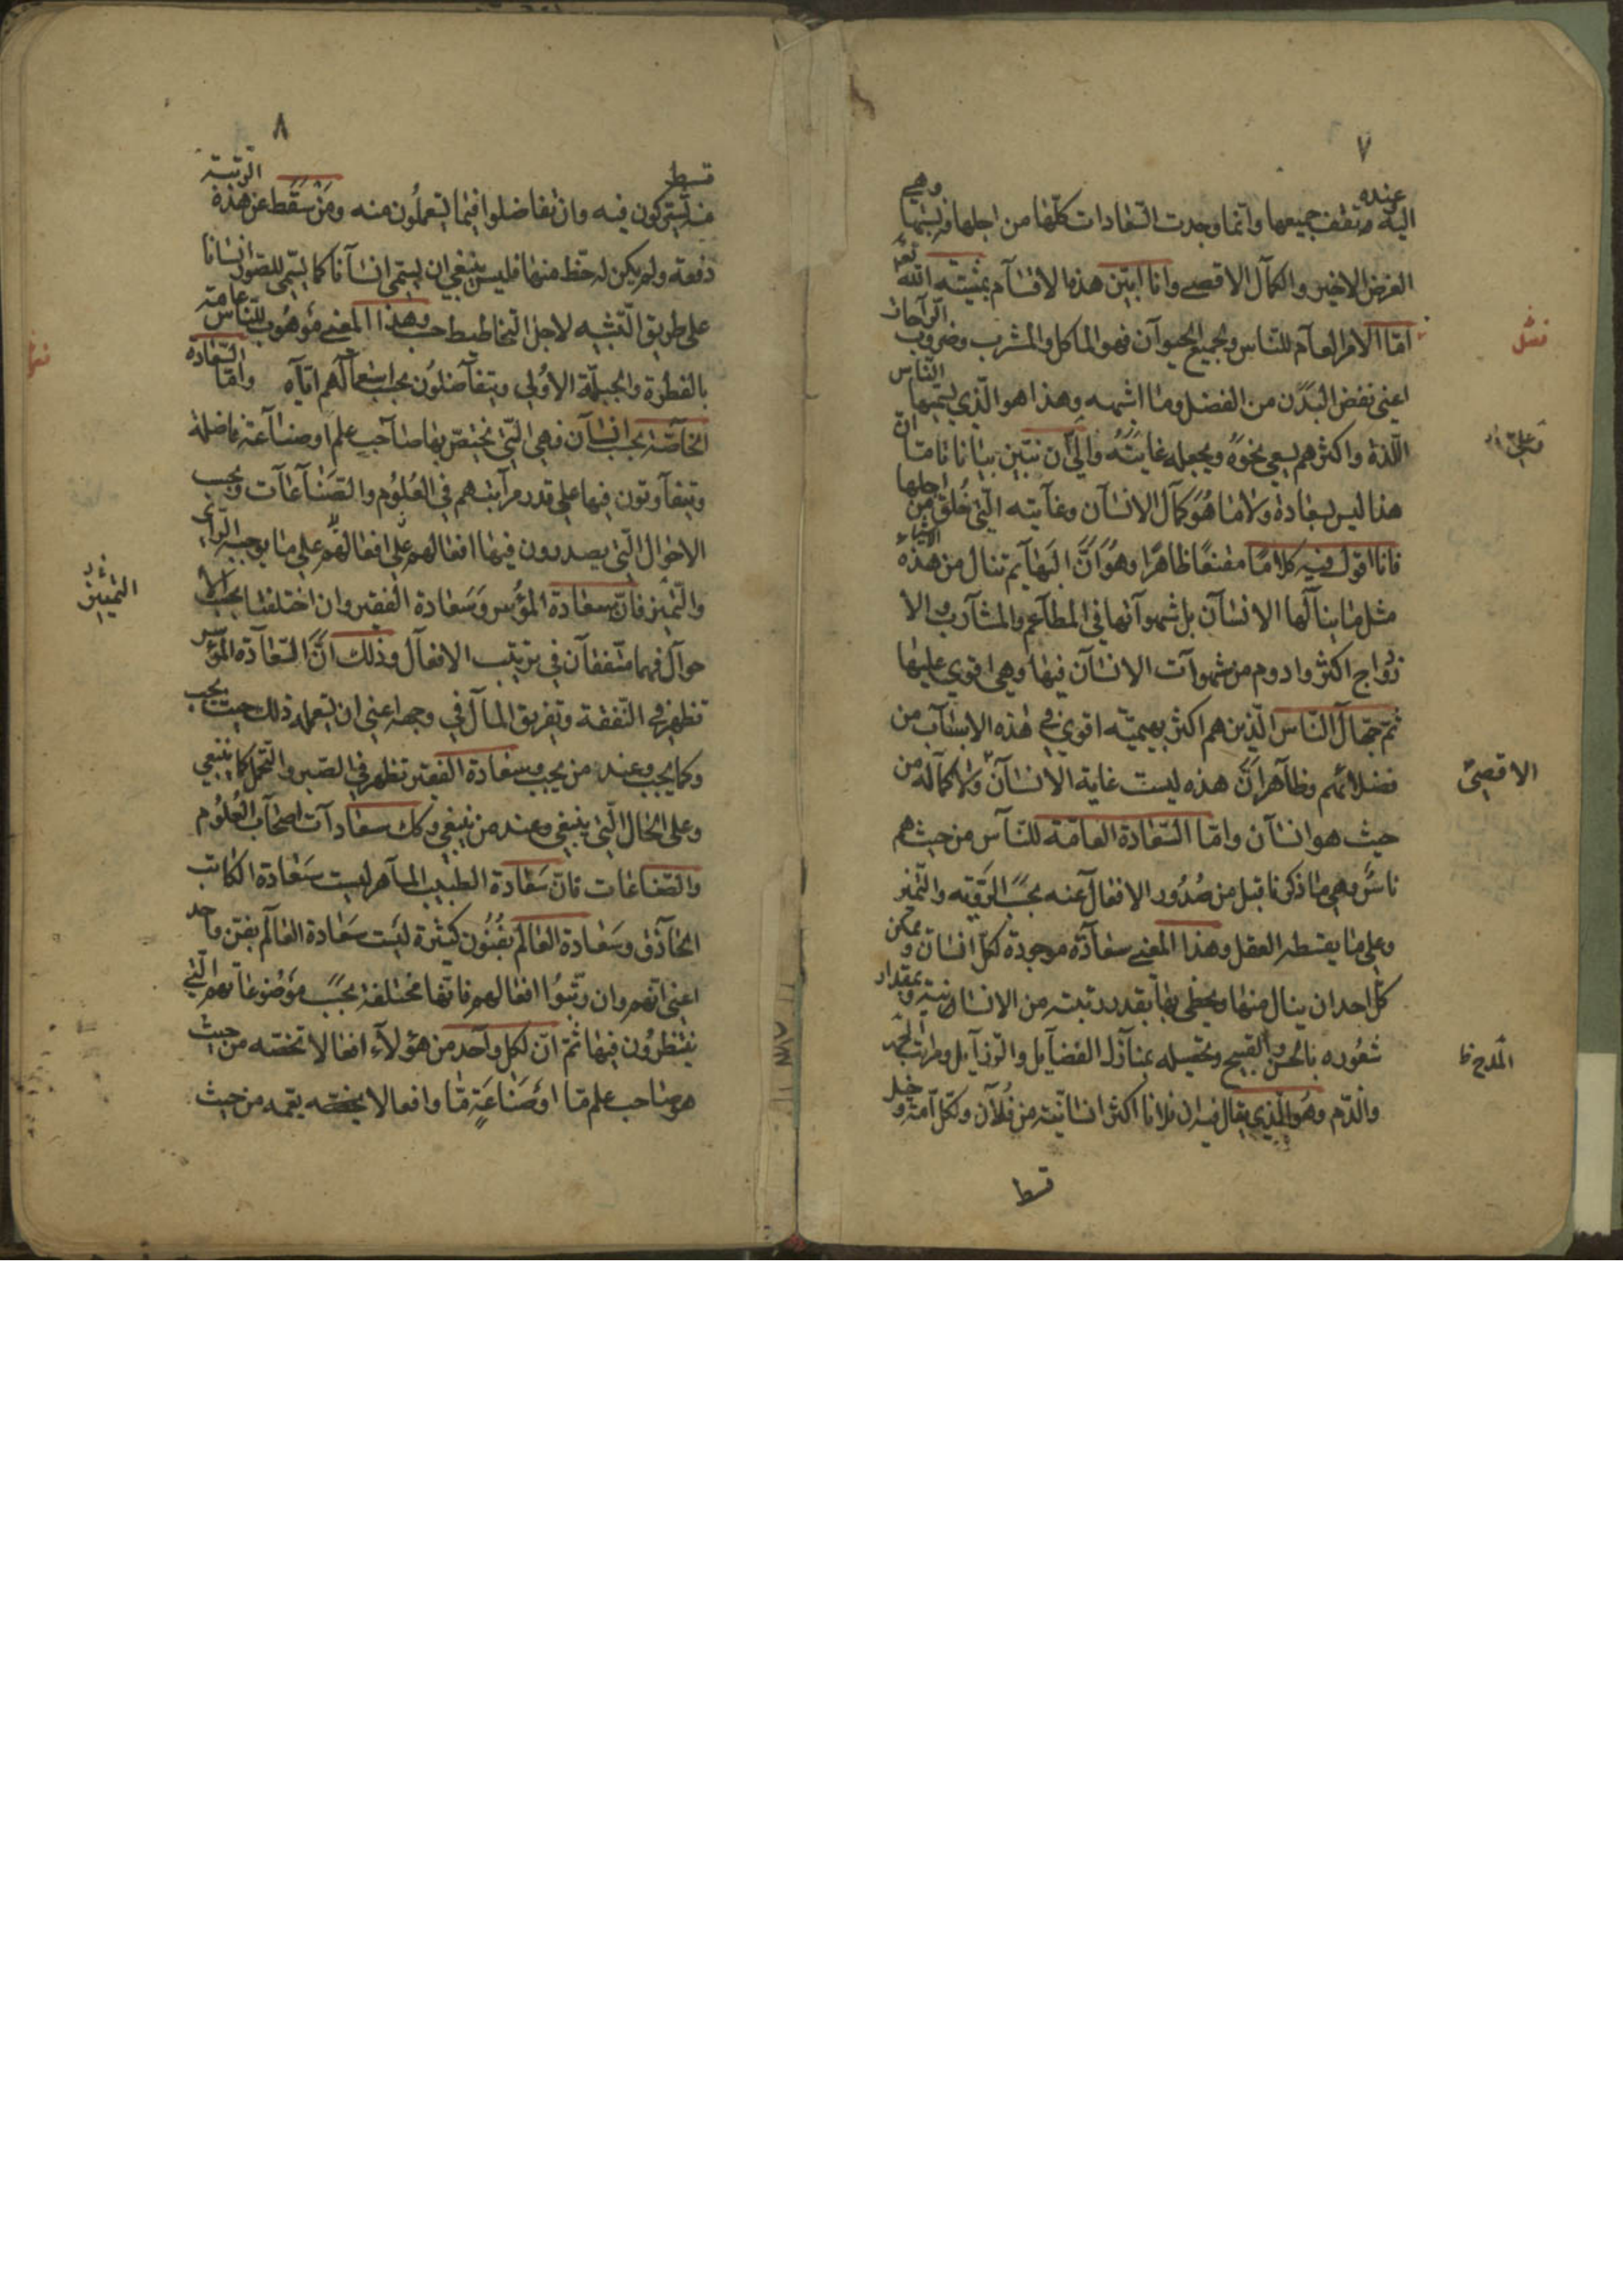 ٧
اليه عنده وتقف جميعها وانما وجدت السعادات كلها من اجلها فهي
الغرض الاخير والكمال الاقصى وانا ابين هذه الاقسام بمشيته الله تعالى
فصل
امّا الامر العام للناس ولجميع الحيوان فهو الماكل والمشرب وضروب الراحات
اعنى نفض البدن من الفضل وما اشبهه وهذا هو الذي يسميها الناس
اللذة واكثرهم يسعى نحوه ويجعله غايته والى ان نتبين بيانا تاما ان
هذا ليس بسعادة ولا ما هو كمال الانسان وغايته التى خلق من اجلها
فانا اقول فيه كلامًا مقنعًا ظاهرًا وهو انّ البهايم تنال من هذه الاشياء
مثل ما ينالها الانسان بل شهوآتها فى المطاعم والمشارب والا
زواج اكثر وادوم من شهوات الانسان فيها وهى اقوي عليها
ثم جهال الناس الذين هم اكثر بهيميته اقوي فى هذه الاسباب من
فضلائهم وظاهر ان هذه ليست غاية الانسان ولا كماله من
الاقصى
حيث هو انسان وامّا السّعادة العامّة للناس من حيث هم
ناسٌ وهي ما ذكرنا قبل من صُدُور الافعال عنه بحسب الرّويّه والتميز
وعلى ما يقسطه العقل وهذا المعنى سعادة موجودة لكل انسان ويمكن
كل احد ان ينال منها ويحظى بها بقدر رتبته من الانسانية وبمقدار
شعوره بالحسن والقبيح وتحصيله منازل الفضايل والرذايل ومراتب الحمد
المدح ظ
والذم وهو الذي يقال فيه ان فلانا اكثر انسانية من فلان ولكل امرء
قسط
٨
قسط
منه يشتركون فيه وان تفاضلوا فيما يستعملون منه ومن سقط عن هذه الرتبة
دفعة ولم يكن له حظ منها فليس ينبغي ان يسمى انسانا كما يسمى المصوّر انسانا
على طريق التشبيه لاجل التخاطيط حسب وهذا المعنى موهوب للناس عامة
بالفطرة والجبلّة الاولى ويتفاضلون بحسب استعمالهم اياه وامّا السّعادة
الخاصّة بحسب انسان فهى التى تختص بها صاحب علم او صناعة فاضلة
ويتفاوتون فيها على قدر مراتبهم فى العلوم والصناعات وبحسب
الاحوال التى يصدرون فيها افعالهم على افعالهم على ما يوجبه الراى
والتميز فانّ سعادة المؤسر وسعادة الفقير وان اختلفتا بحسب الا
التمييز
حوال فهما متفقان فى ترتيب الافعال وذلك انّ السّعادة المؤسر
تظهر فى النفقة وتفريق المال فى وجهه اعني ان يستعمله ذلك حيث يجب
وكما يجب وعند من يجب وسعادة الفقير تظهر في الصبر والتحمل كما ينبغي
وعلى الحال التى ينبغي وعند من ينبغي وكك سعادات اصحاب العلوم
والصناعات فانّ سعادة الطبيب الماهر ليست سعادة الكاتب
الحاذق وسعادة العالم بفنون كثيرة ليست سعادة العالم بفن واحد
اعني انهم وان رتبوا افعالهم فانها مختلفة بحسب موضوعاتهم التى
ينتظرون فيها ثم انّ لكل واحد من هؤلاء افعالا تخصّه من حيث
هو صاحب علم ما او صناعةٍ ما وافعالا يعمه من حيث